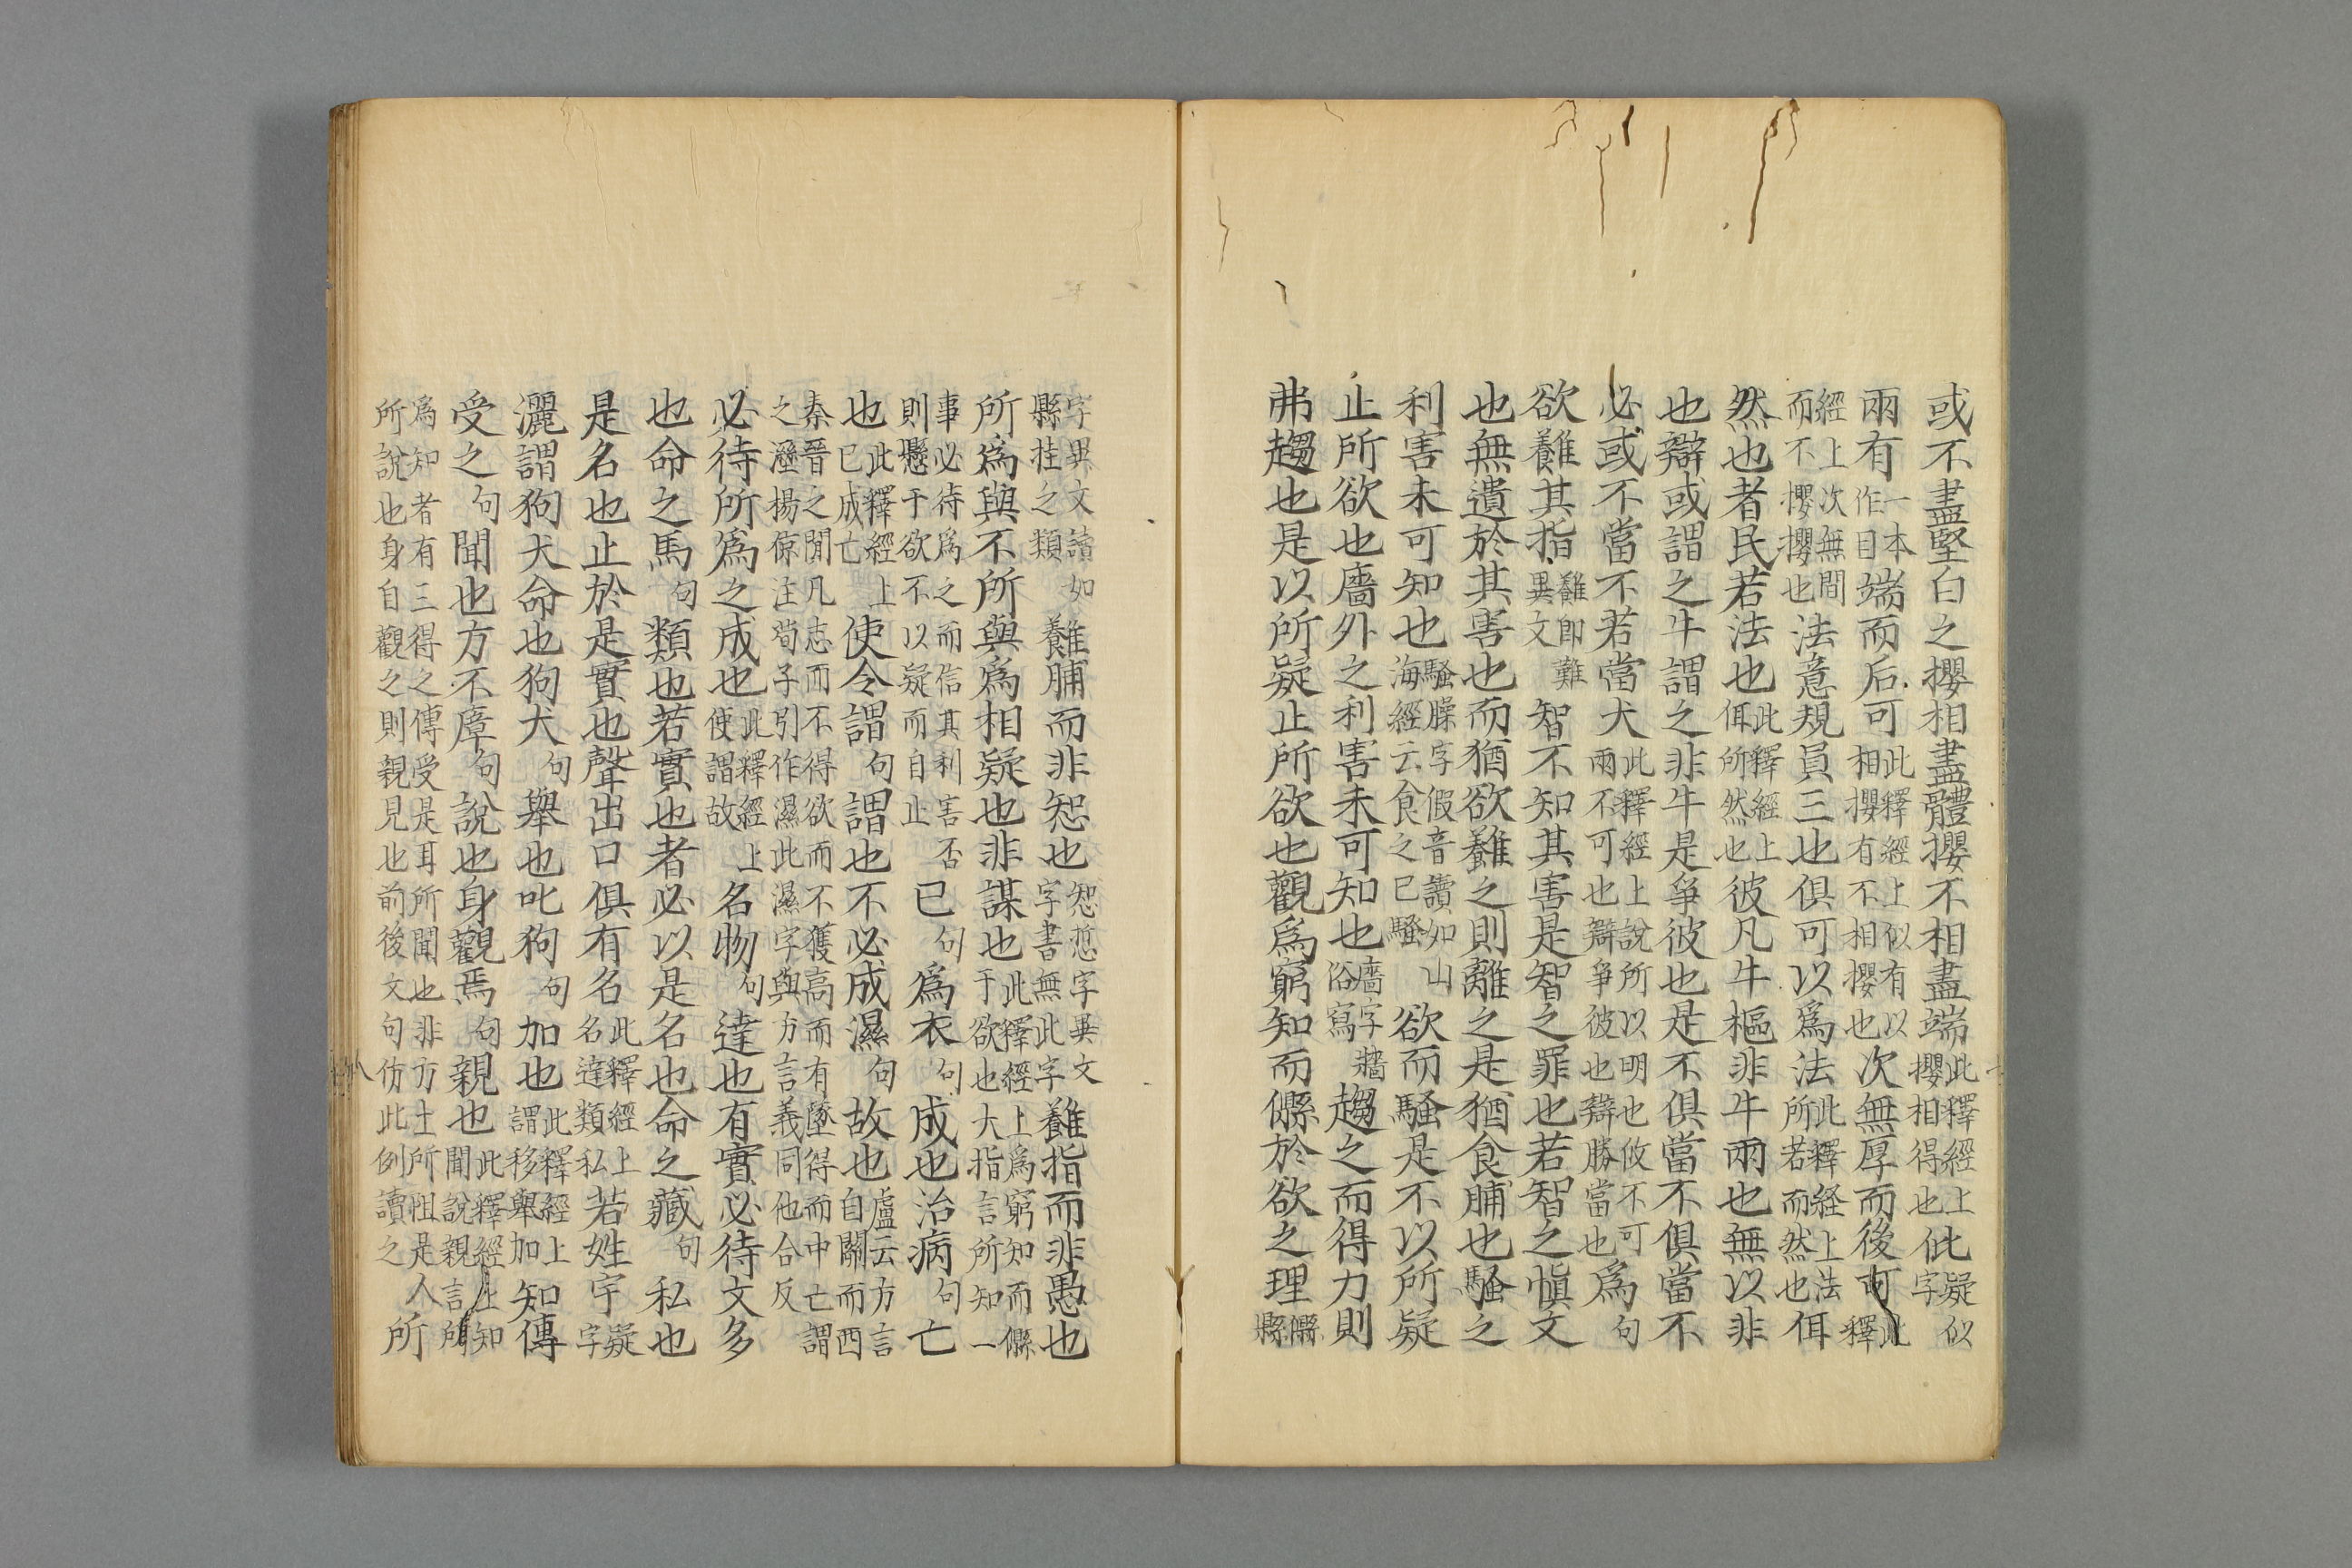 或不盡堅白之攖相盡體攖不相盡端此釋經上攖相得也仳疑似字
兩有一本作目端而后可此釋經上似有以相攖有不相攖也次無厚而後可此釋
經上次無間而不攖攖也法意規員三也俱可以爲法此釋経上法所若而然也佴
然也者民若法也此釋經上佴所然也彼凡牛樞非牛兩也無以非
也辯或謂之牛謂之非牛是爭彼也是不俱當不俱當不
必或不當不若當犬此釋經上說所以明也攸不可兩不可也辯爭彼也辯勝當也爲句
欲𩀼其指𩀼卽難異文智不知其害是智之罪也若智之愼文
也無遺於其害也而猶欲𩀼之則離之是猶食脯也騷之
利害未可知也騷臊字假音讀如山海經云食之已騷欲而騷是不以所疑
止所欲也廧外之利害未可知也廧字牆俗寫趨之而得力則
弗趨也是以所疑止所欲也觀爲窮知而𠐺於欲之理𠐺縣
字異文讀如縣挂之類𩀼脯而非恕也恕悊字異文字書無此字𩀼指而非愚也
所爲與不所與爲相疑也非謀也此釋經上爲窮知而𠐺于欲也大指言所知一
事必待爲之而信其利害否則懸于欲不以疑而自止已句爲衣句成也治病句亡
也此釋經上已成亡使令謂句謂也不必成濕句故也盧云方言自關而西
秦晉之閒凡志而不得欲而不獲高而有墜得而中亡謂之溼楊倞注荀子引作濕此濕字與方言義同他合反
必待所爲之成也此釋經上使謂故名物句達也有實必待文多
也命之馬句類也若實也者必以是名也命之藏句私也
是名也止於是實也聲出口俱有名此釋經上名達類私若姓宇疑字
灑謂狗犬命也狗犬句舉也叱狗句加也此釋經上謂移舉加知傳
受之句聞也方不㢓句說也身觀焉句親也此釋經上知聞說親言所
爲知者有三得之傳受是耳所聞也非方土所阻是人所說也身自觀之則親見也前後文句仿此例讀之所